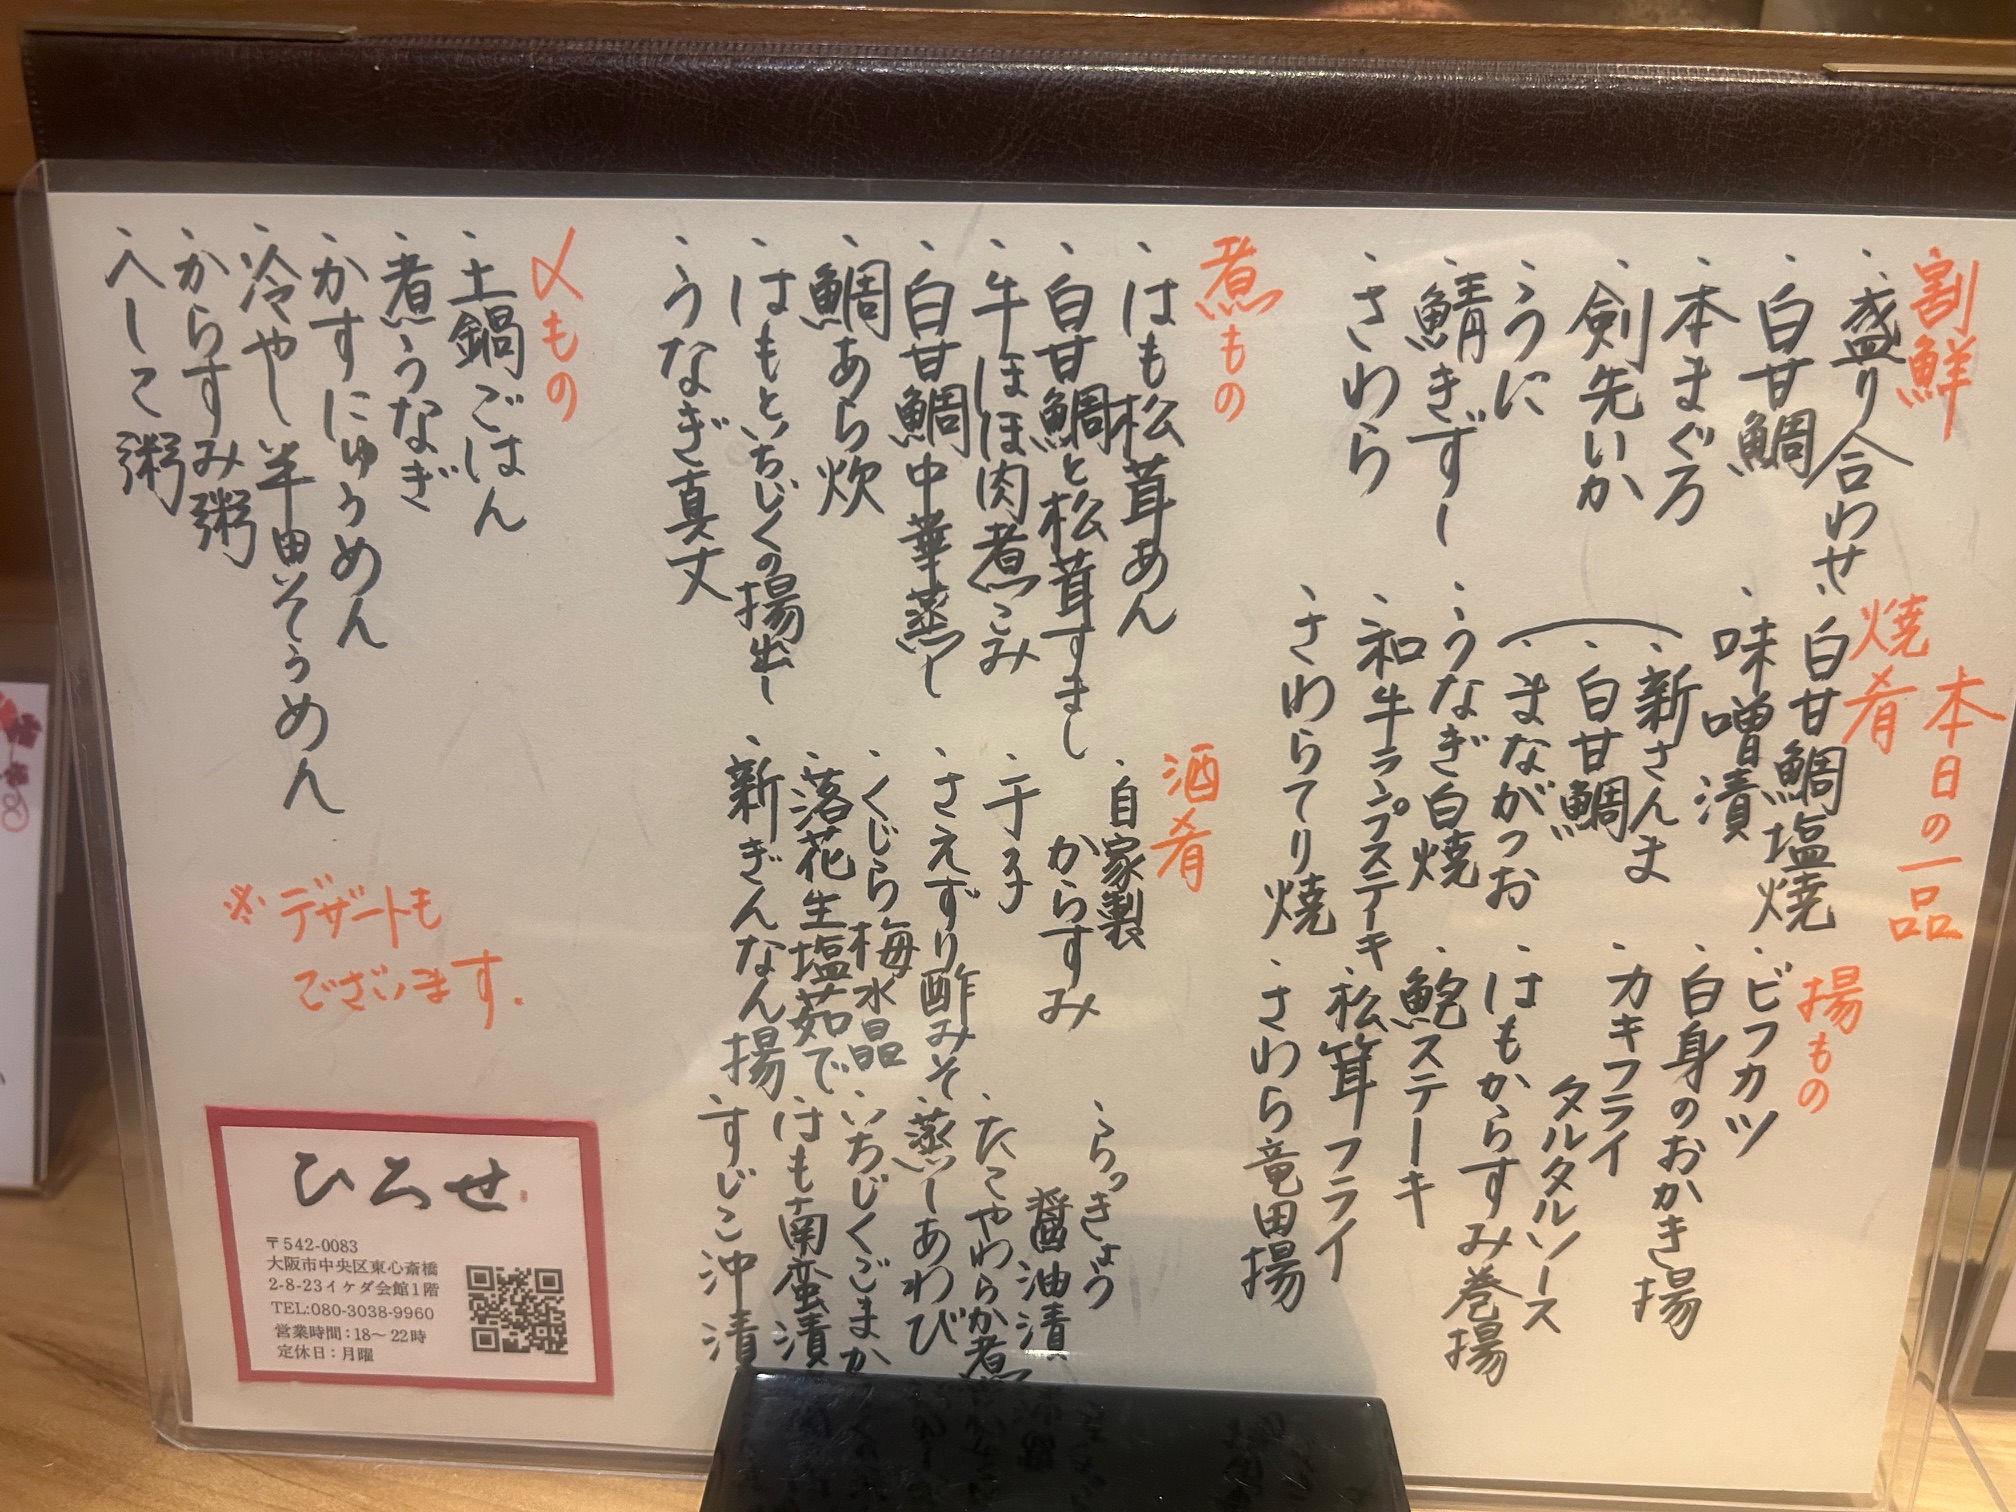 本日の一品
割鮮
盛り合わせ
白甘鯛
本まぐろ
剣先いか
うに
鯖きずし
さわら
焼肴
白甘鯛塩焼
味噌漬
新さんま
白甘鯛
まながつお
うなぎ白焼
和牛ランプステーキ
さわらてり焼
揚もの
ビフカツ
白身のおかき揚
カキフライ
タルタルソース
はもからすみ巻揚
鮑ステーキ
松茸フライ
さわら竜田揚
煮もの
はも松茸あん
白甘鯛と松茸すまし
牛ほほ肉煮こみ
白甘鯛中華蒸し
鯛あら炊
はもといちじくの揚出し
うなぎ真丈
酒肴
自家製
からすみ
干子
さえずり酢みそ
くじら梅水晶
落花生塩茹で
新ぎんなん揚
らっきょう
醤油漬
たこやわらか煮
蒸しあわび
いちじくごまか
はも南蛮漬
すじこ沖漬
〆もの
土鍋ごはん
煮うなぎ
かすにゅうめん
冷やし半田そうめん
からすみ粥
へしこ粥
※デザートも
ございます.
ひろせ
〒542-0083
大阪市中央区東心斎橋
2-8-23イケダ会館1階
TEL:080-3038-9960
営業時間:18〜22時
定休日:月曜